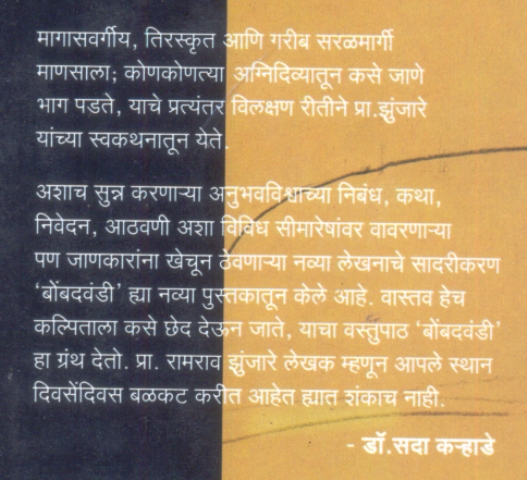 मागासवर्गीय, तिरस्कृत आणि गरीब सरळमार्गी
माणसाला; कोणकोणत्या अग्निदिव्यातून कसे जाणे
भाग पडते, याचे प्रत्यंतर विलक्षण रीतीने प्रा.झुंजारे
यांच्या स्वकथनातून येते.
अशाच सुन्न करणाऱ्या अनुभवविश्वाच्या निबंध, कथा,
निवेदन, आठवणी अशा विविध सीमारेषांवर वावरणाऱ्या
पण जाणकारांना खेचून ठेवणाऱ्या नव्या लेखनाचे सादरीकरण
‘बोंबदवंडी’ ह्या नव्या पुस्तकातून केले आहे. वास्तव हेच
कल्पिताला कसे छेद देऊन जाते, याचा वस्तुपाठ ‘बोंबदवंडी’
हा ग्रंथ देतो. प्रा. रामराव झुंजारे लेखक म्हणून आपले स्थान
दिवसेंदिवस बळकट करीत आहेत ह्यात शंकाच नाही.
- डॉ.सदा कऱ्हाडे